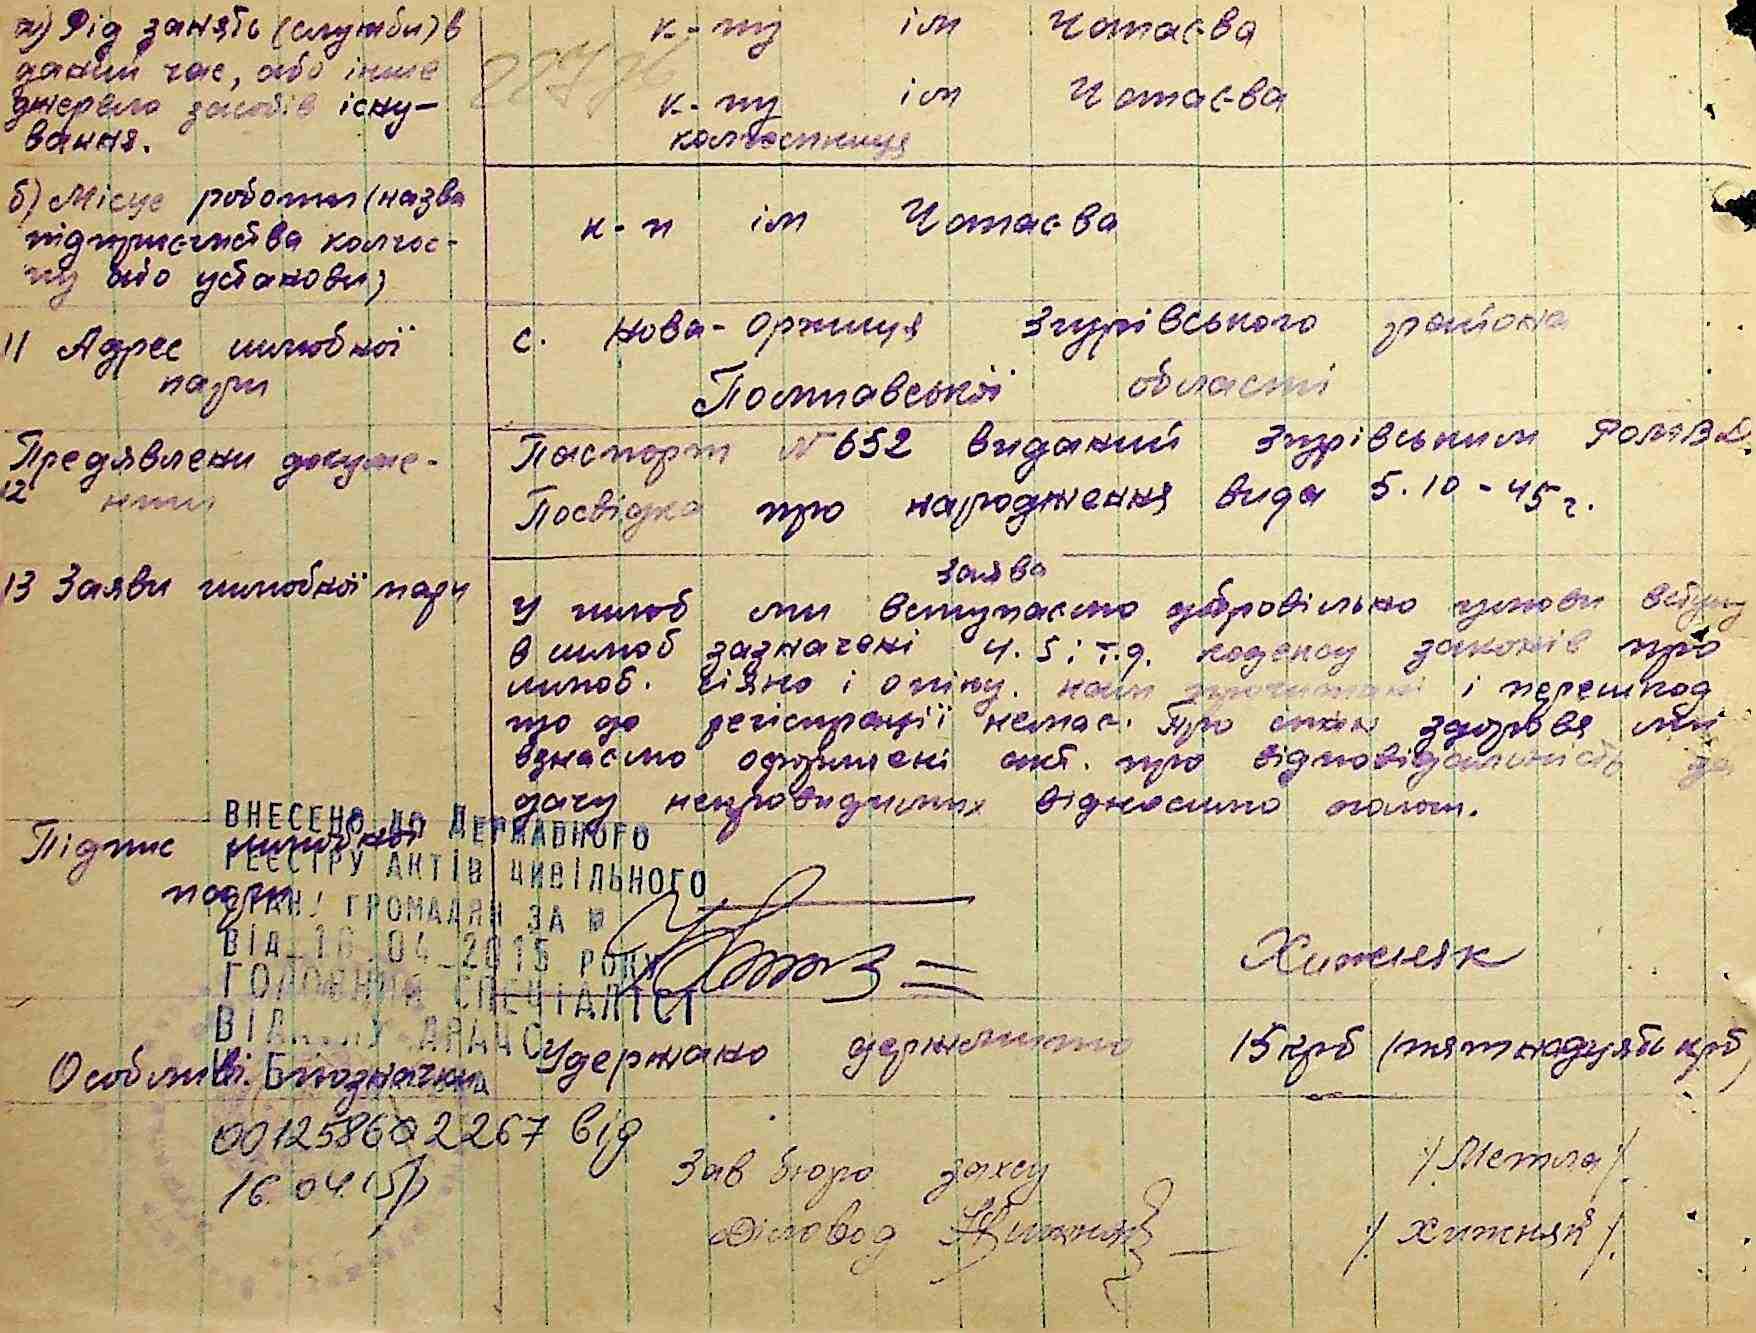 а) Рід занять (служби) в
даний час, або інше
джерело засобів існу-
вання.
к-пу ім Чапаєва
к-пу ім Чапаєва
колгоспниця
б) Місце роботи (назва
підприємства колгос-
пу або установи)
к-п ім Чапаєва
11 Адрес шлюбної
пари
с. Нова-Оржиця Згурівського района
Полтавської області
Предявлени докуме-
12 нти
Паспорт № 652 виданий Згурівським РОМВД.
Посвідка про народження вида 5.10-45 г.
13 Заяви шлюбної пари
Заява
У шлюб ми вступаємо добровільно умови вступу
в шлюб зазначені 4.5 і т.д. кодексу законів про
шлюб. і опіку. нам прочитані і перешкод
що до регістрації немає. Про стан здоровя ми
взнаємо оформлені акт. про відповідальність за
дачу неправидимих відносимо
Підпис шлюбної
пари
ВНЕСЕНО ДО ДЕРЖАВНОГО
РЕЄСТРУ АКТІВ ЦИВІЛЬНОГО
СТАНУ ГРОМАДЯН ЗА №
ВІД 16 04 2015 РОКУ
ГОЛОВНИЙ СПЕЦІАЛІСТ
ВІДДІЛУ ДРАЦС
Хижняк
Особливі відзначки
Удержано держмито 15 крб (пятнадцять крб)
001258602267 від
16.04.15р
Зав бюро загсу /Метла/.
Діловод /Хижняк/.